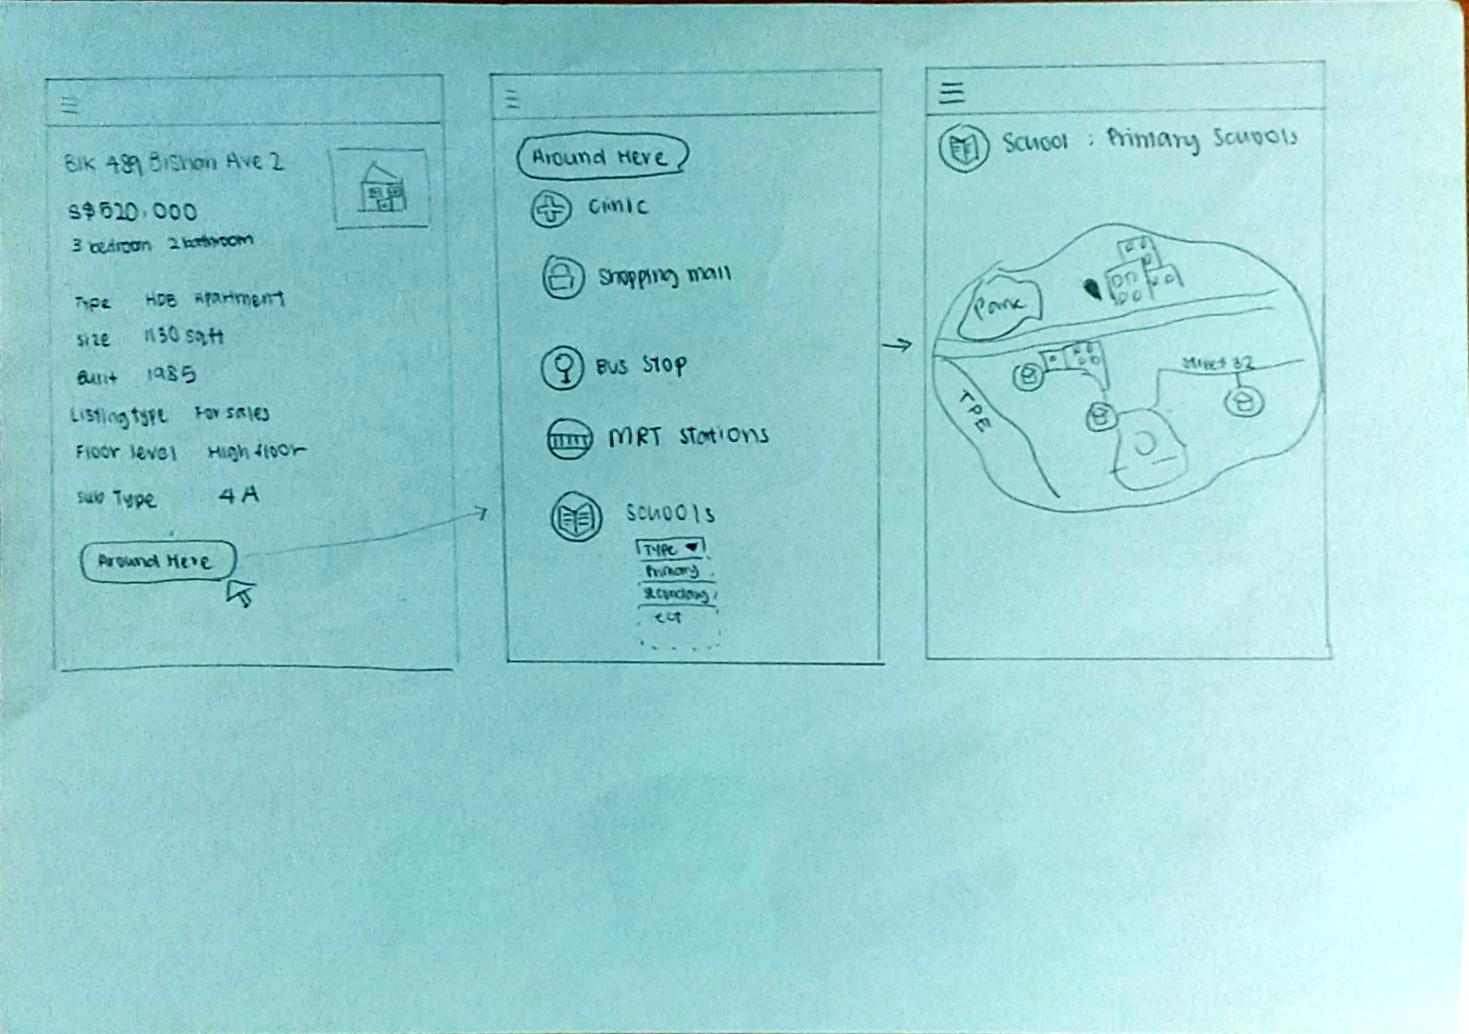 Blk 489 Bishan Ave 2
S$520,000
3 bedroom 2 bathroom
Type HDB Apartment
Size 1130 sqft
Built 1985
Listing type For sales
Floor level High floor
Sub Type 4A
Around Here
Around Here
Clinic
Shopping mall
Bus Stop
MRT Stations
Schools
Type
Primary
Secondary
ect
School : Primary Schools
Park
Street 32
TPE